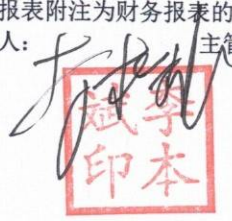 报表附注为财务报表的
人：
主管
李本斌印